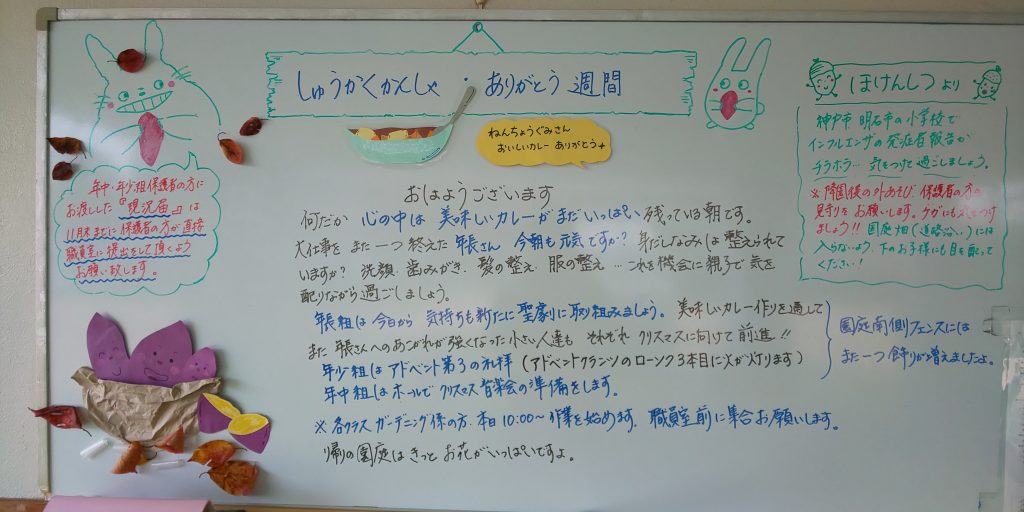 しゅうかくかんしゃ・ありがとう週間
ねんちょうぐみさん
おいしいカレーありがとう
年中・年少組保護者の方に
お渡しした『現況届』は
11月末までに保護者の方が直接
職員室に提出をして頂くよう
お願い致します。
おはようございます
何だか 心の中は 美味しいカレーがまだいっぱい残っている朝です。
大仕事を また一つ 終えた 年長さん 今朝も元気ですか? 身だしなみは 整えられて
いますか? 洗顔・歯みがき、髪の整え・服の整え…これを機会に親子で気を
配りながら過ごしましょう。
年長組は今日から 気持ちも新たに聖劇に取り組みましょう。 美味しいカレー作りを通して
また 年長さんへのあこがれが強くなった小さい人達も それぞれ クリスマスに向けて前進!!
年少組はアドベント第3の礼拝 (アドベントクランツのローソク3本目に火が灯ります)
年中組はホールで クリスマス音楽会の準備をします。
※各クラス ガーデニング係の方、本日10:00〜作業を始めます。職員室前に集合お願いします。
帰りの園庭は きっと お花がいっぱいですよ。
園庭南側フェンスには
また一つ飾りが増えましたよ。
ほけんしつより
神戸市 明石市の小学校で
インフルエンザの発症者報告が
チラホラ… 気をつけて過ごしましょう。
※降園後の外あそび、保護者の方の
見守りをお願いします。ケガにも気をつけ
ましょう!! 園庭畑(道路沿い)には
入らないよう、下のお子様にも目を配って
ください!